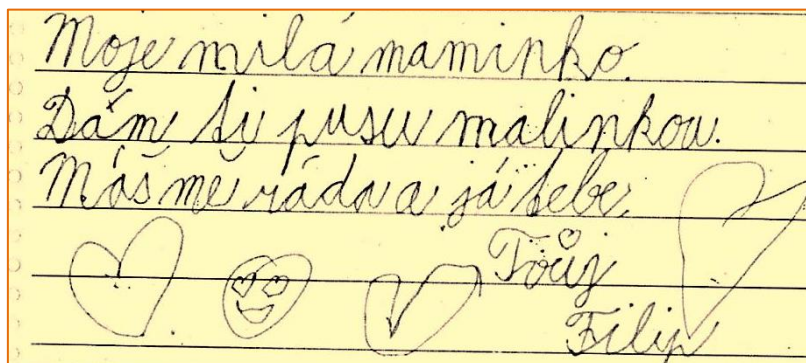 Moje milá maminko.
Dám ti pusu malinkou.
Máš mě ráda a já tebe.
Tvůj
Filip